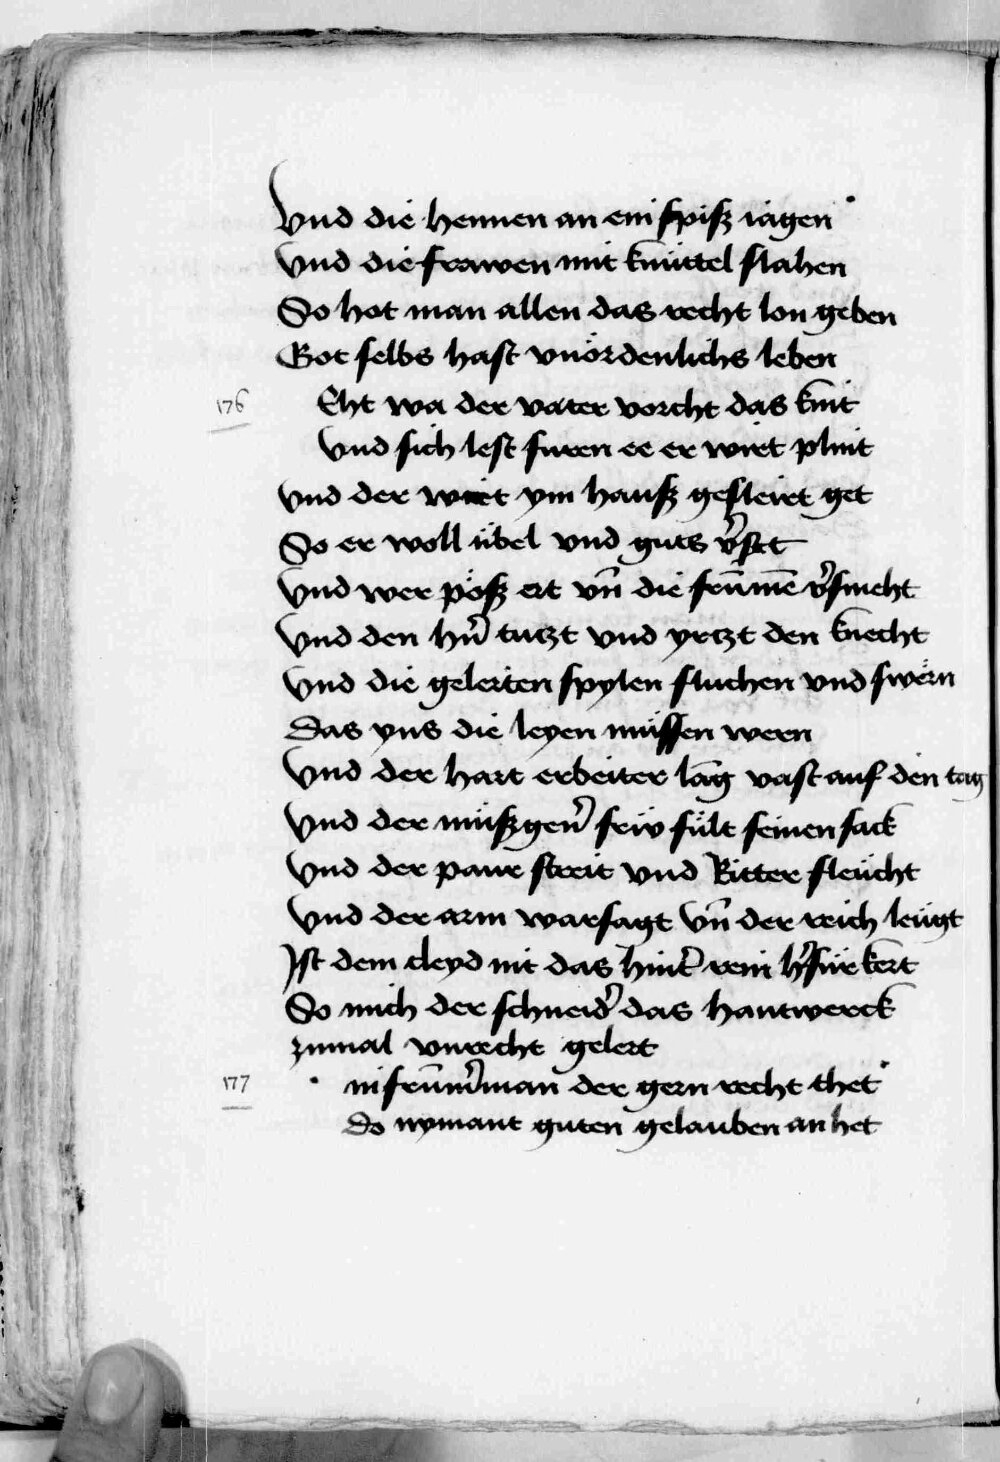 Vnd die hennen an ein spisz iagen
Vnd die frawen mit knüttel slahen
So hot man allen das recht lon geben
Got selbs hast vnördenlichs leben
176
Eht wa der vater vorcht das kint
Vnd sich lest furen ee er wirt plint
Vnd der wirt ym hausz gesleirt get
So er woll übel vnd guts v̉stet
Vnd wer pösz ert vn̄ die frūmē v̉smeht
Vnd den hn̉ tutzt vnd yrtzt den knecht
Vnd die gelerten spylen fluchen vnd swern
Das yns die leyen müssen wern
Vnd der hart erbeiter lāg vast auf den tag
Vnd der müszgen̉ frw fült seinen sack
Vnd der paur streit vnd Ritter fleücht
Vnd der arm warsagt vn̄ der reich leügt
Ist dem cleyd nit das hint̉ rein h̉für kert
So mich der schneid̉ das hantwerck
zumal vnrecht gelert
177
in frūm̉man der gern recht thet
do nymant guten gelauben an het